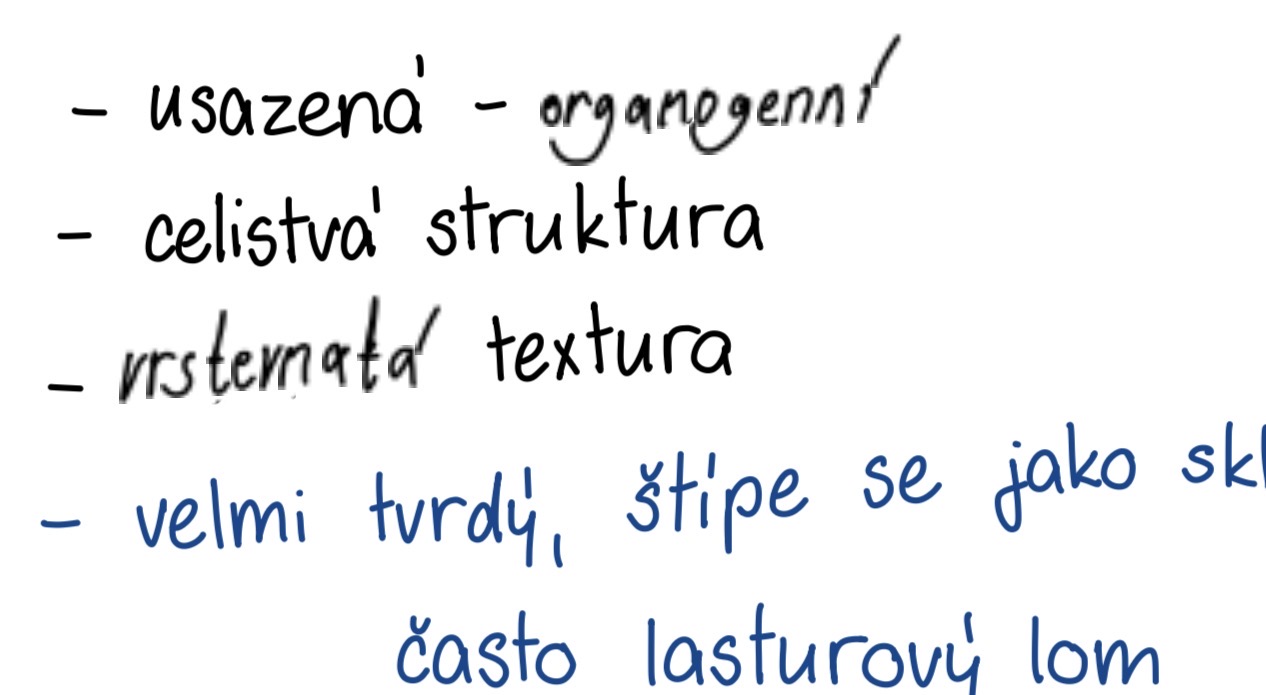 - usazená - organogenní
- celistvá struktura
- vrstevnatá textura
- velmi tvrdý, štípe se jako skl
často lasturový lom